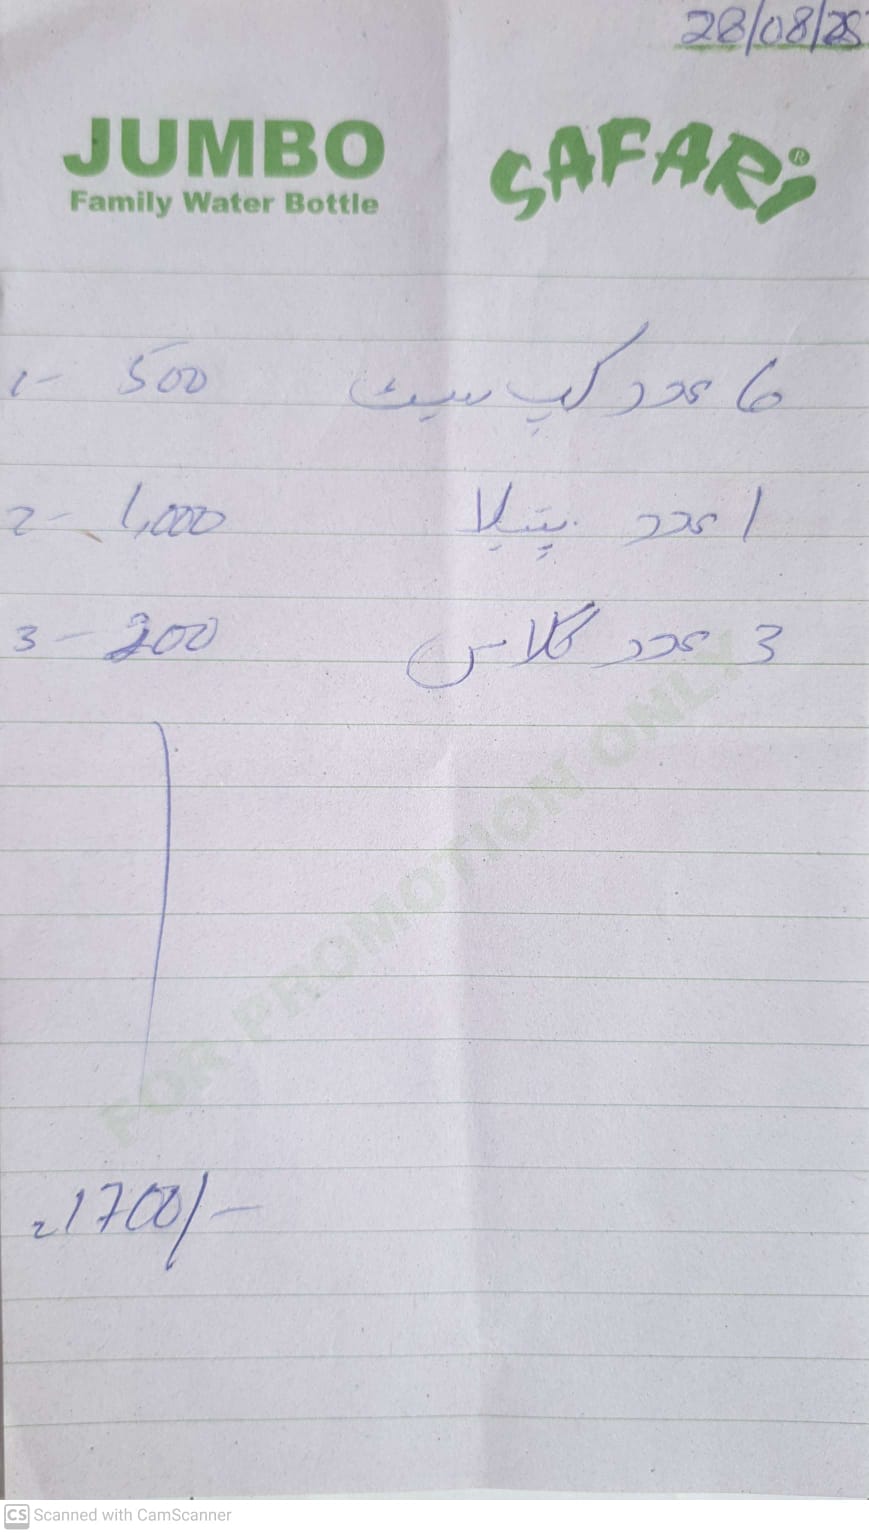 28/08/25
JUMBO
Family Water Bottle
SAFARI®
1- 500 6 عدد کپ سیٹ
2- 1,000 1 عدد پتیلا
3- 200 3 عدد گلاس
FOR PROMOTION ONLY
1700/-
CS Scanned with CamScanner